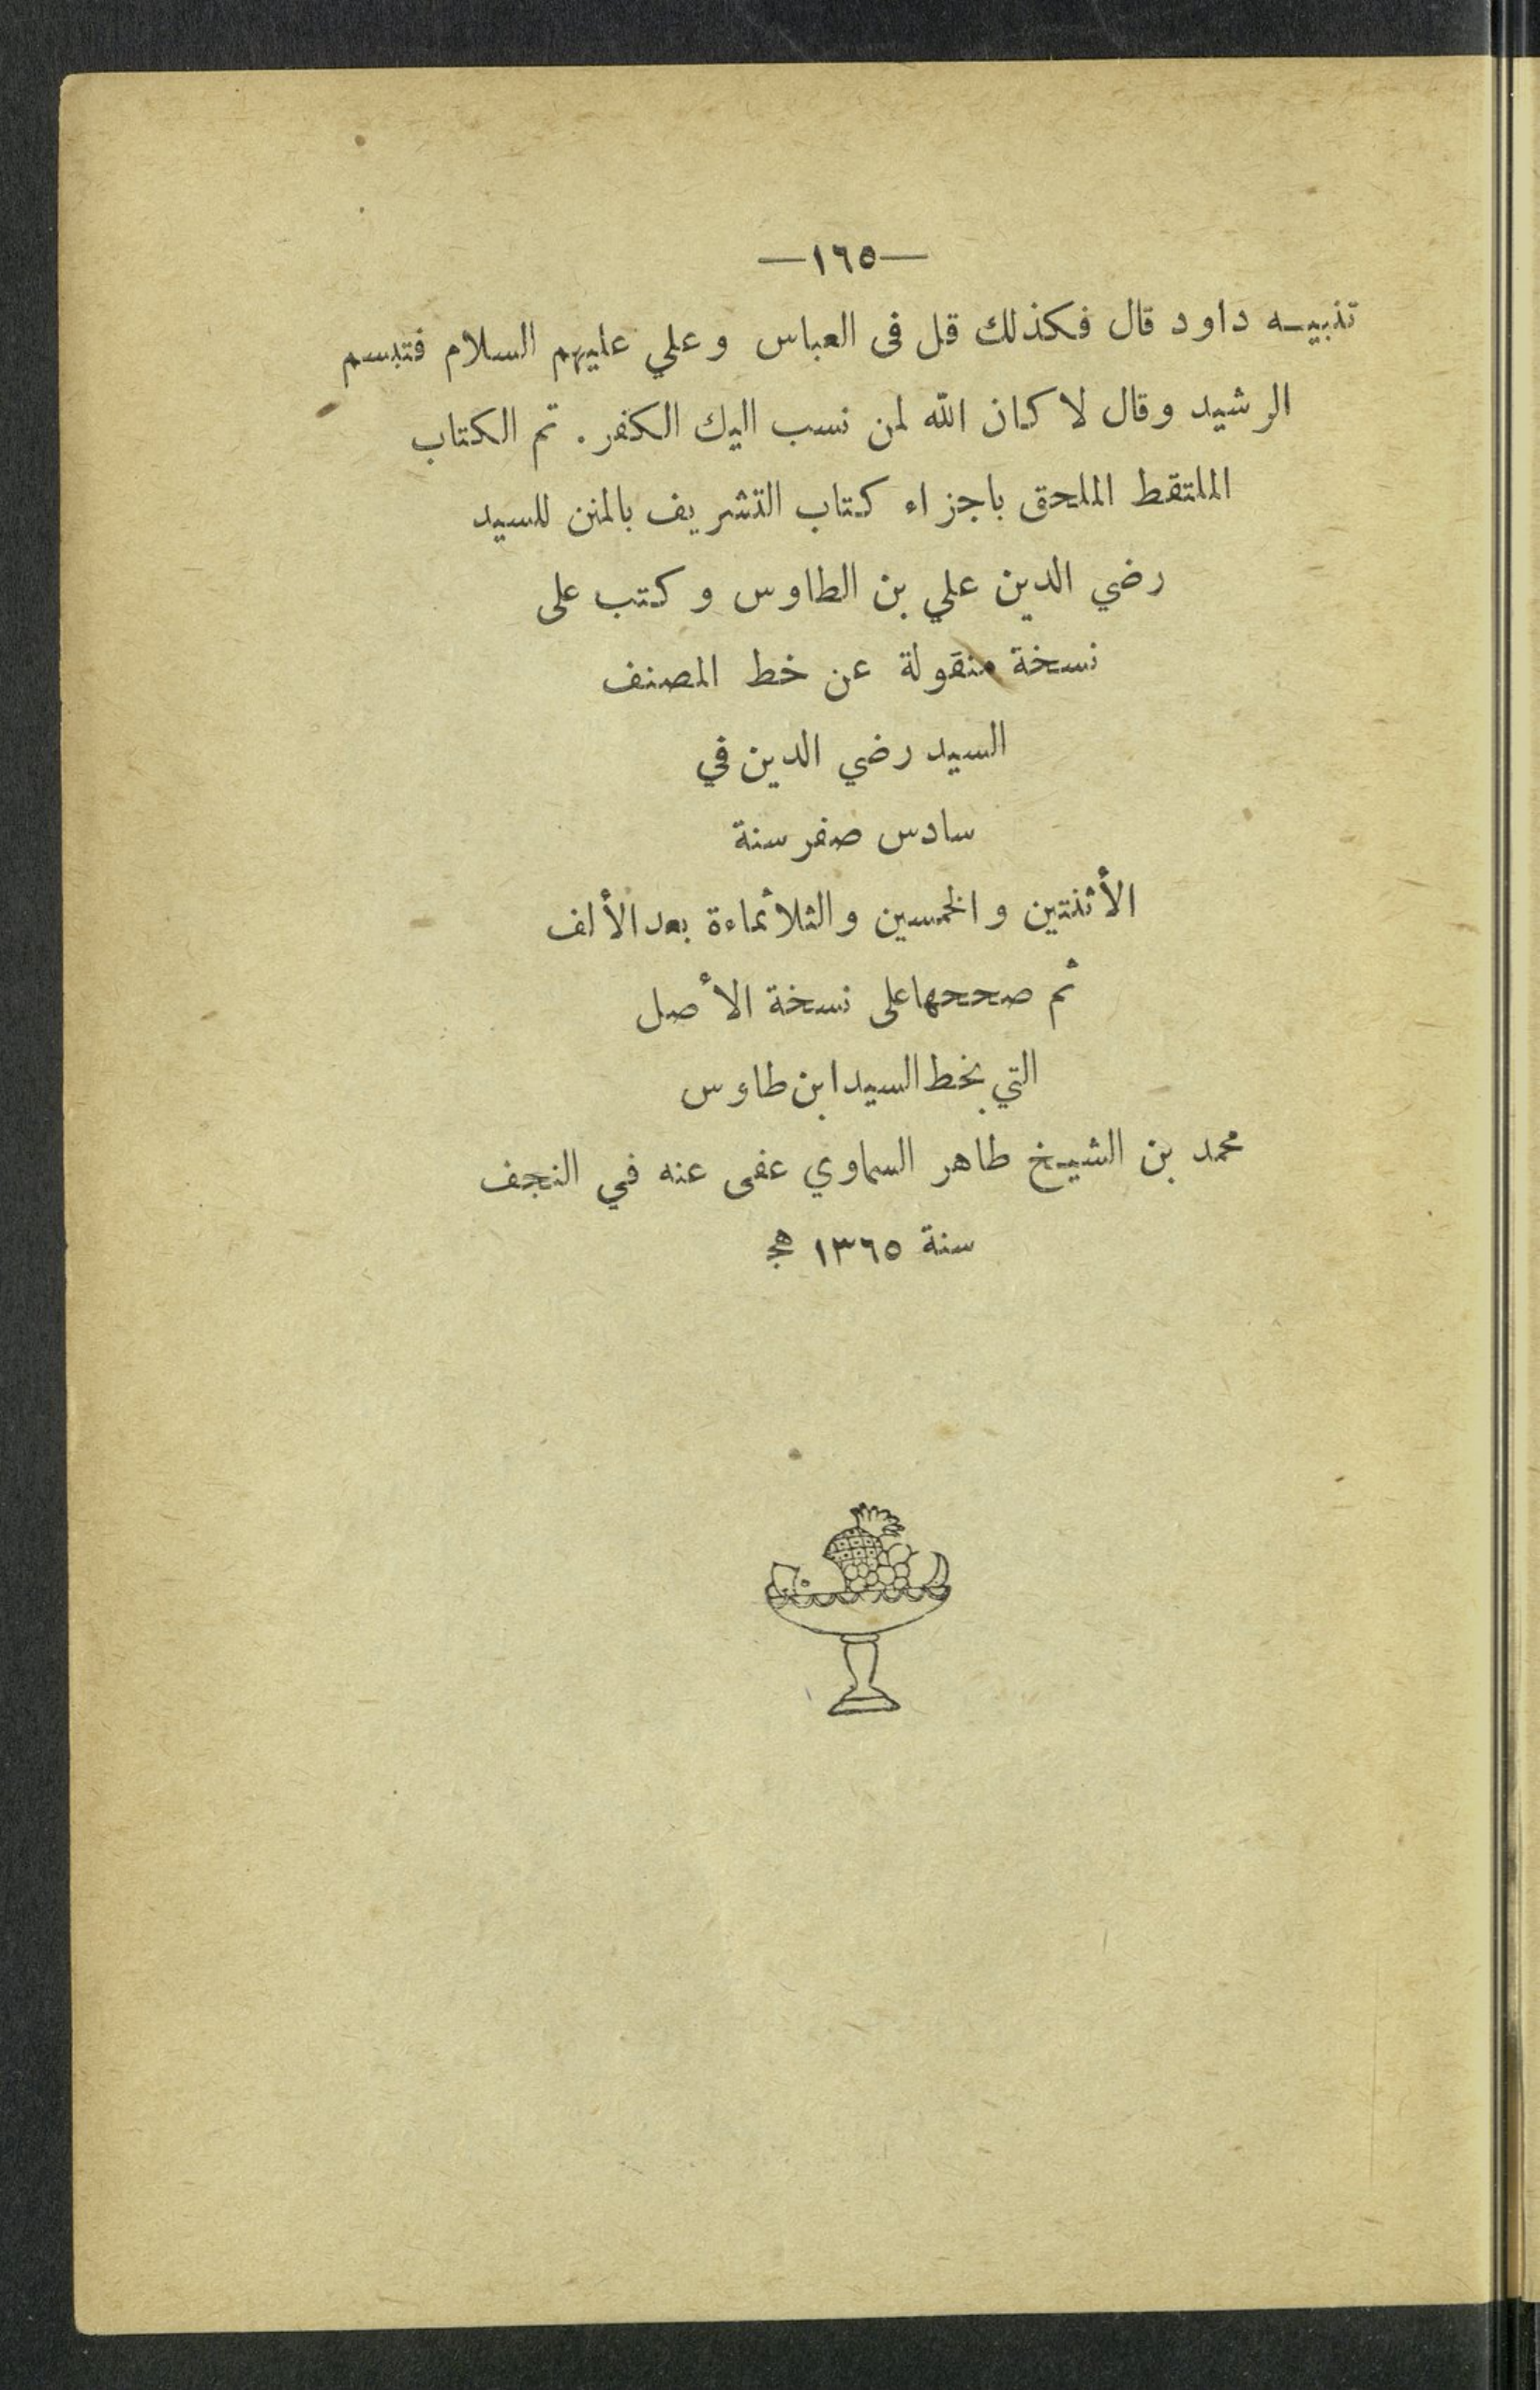 —١٦٥—
تنبيه داود قال فكذلك قل فى العباس وعلي عليهم السلام فتبسم
الرشيد وقال لا كان الله لمن نسب اليك الكفر . تم الكتاب
الملتقط الملحق باجزاء كتاب التشريف بالمنن للسيد
رضي الدين علي بن الطاوس وكتب على
نسخة منقولة عن خط المصنف
السيد رضي الدين في
سادس صفر سنة
الأثنتين والخمسين والثلاثماءة بعد الألف
ثم صححها على نسخة الأصل
التي بخط السيد ابن طاوس
محمد بن الشيخ طاهر السماوي عفى عنه في النجف
سنة ١٣٦٥ هج